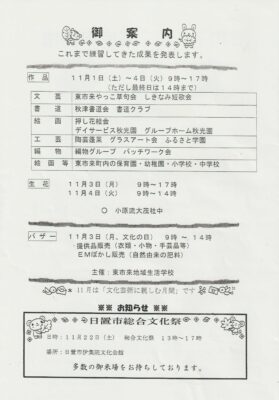 御案内
これまで練習してきた成果を発表します。
作品 11月1日(土)~4日(火) 9時~17時
(ただし最終日は14時まで)
文芸 東市来やっこ草句会 しきなみ短歌会
書道 秋津書道会 書道クラブ
絵画 押し花絵会
デイサービス秋光園 グループホーム秋光園
工芸 陶芸蓬莱 グラスアート会 ふるさと学園
編物 編物グループ パッチワーク会
絵画等 東市来町内の保育園・幼稚園・小学校・中学校
生花 11月3日(月) 9時~17時
11月4日(火) 9時~14時
○ 小原流大茂社中
バザー 11月3日(月、文化の日) 9時~14時
提供品販売(衣類・小物・手芸品等)
EMぼかし販売(自然由来の肥料)
主催:東市来地域生活学校
*11月は「文化芸術に親しむ月間」です
※※ お知らせ ※※
日置市総合文化祭
日時:11月22日(土) 総合文化祭 13時~17時
場所:日置市伊集院文化会館
多数の御来場をお待ちしております。